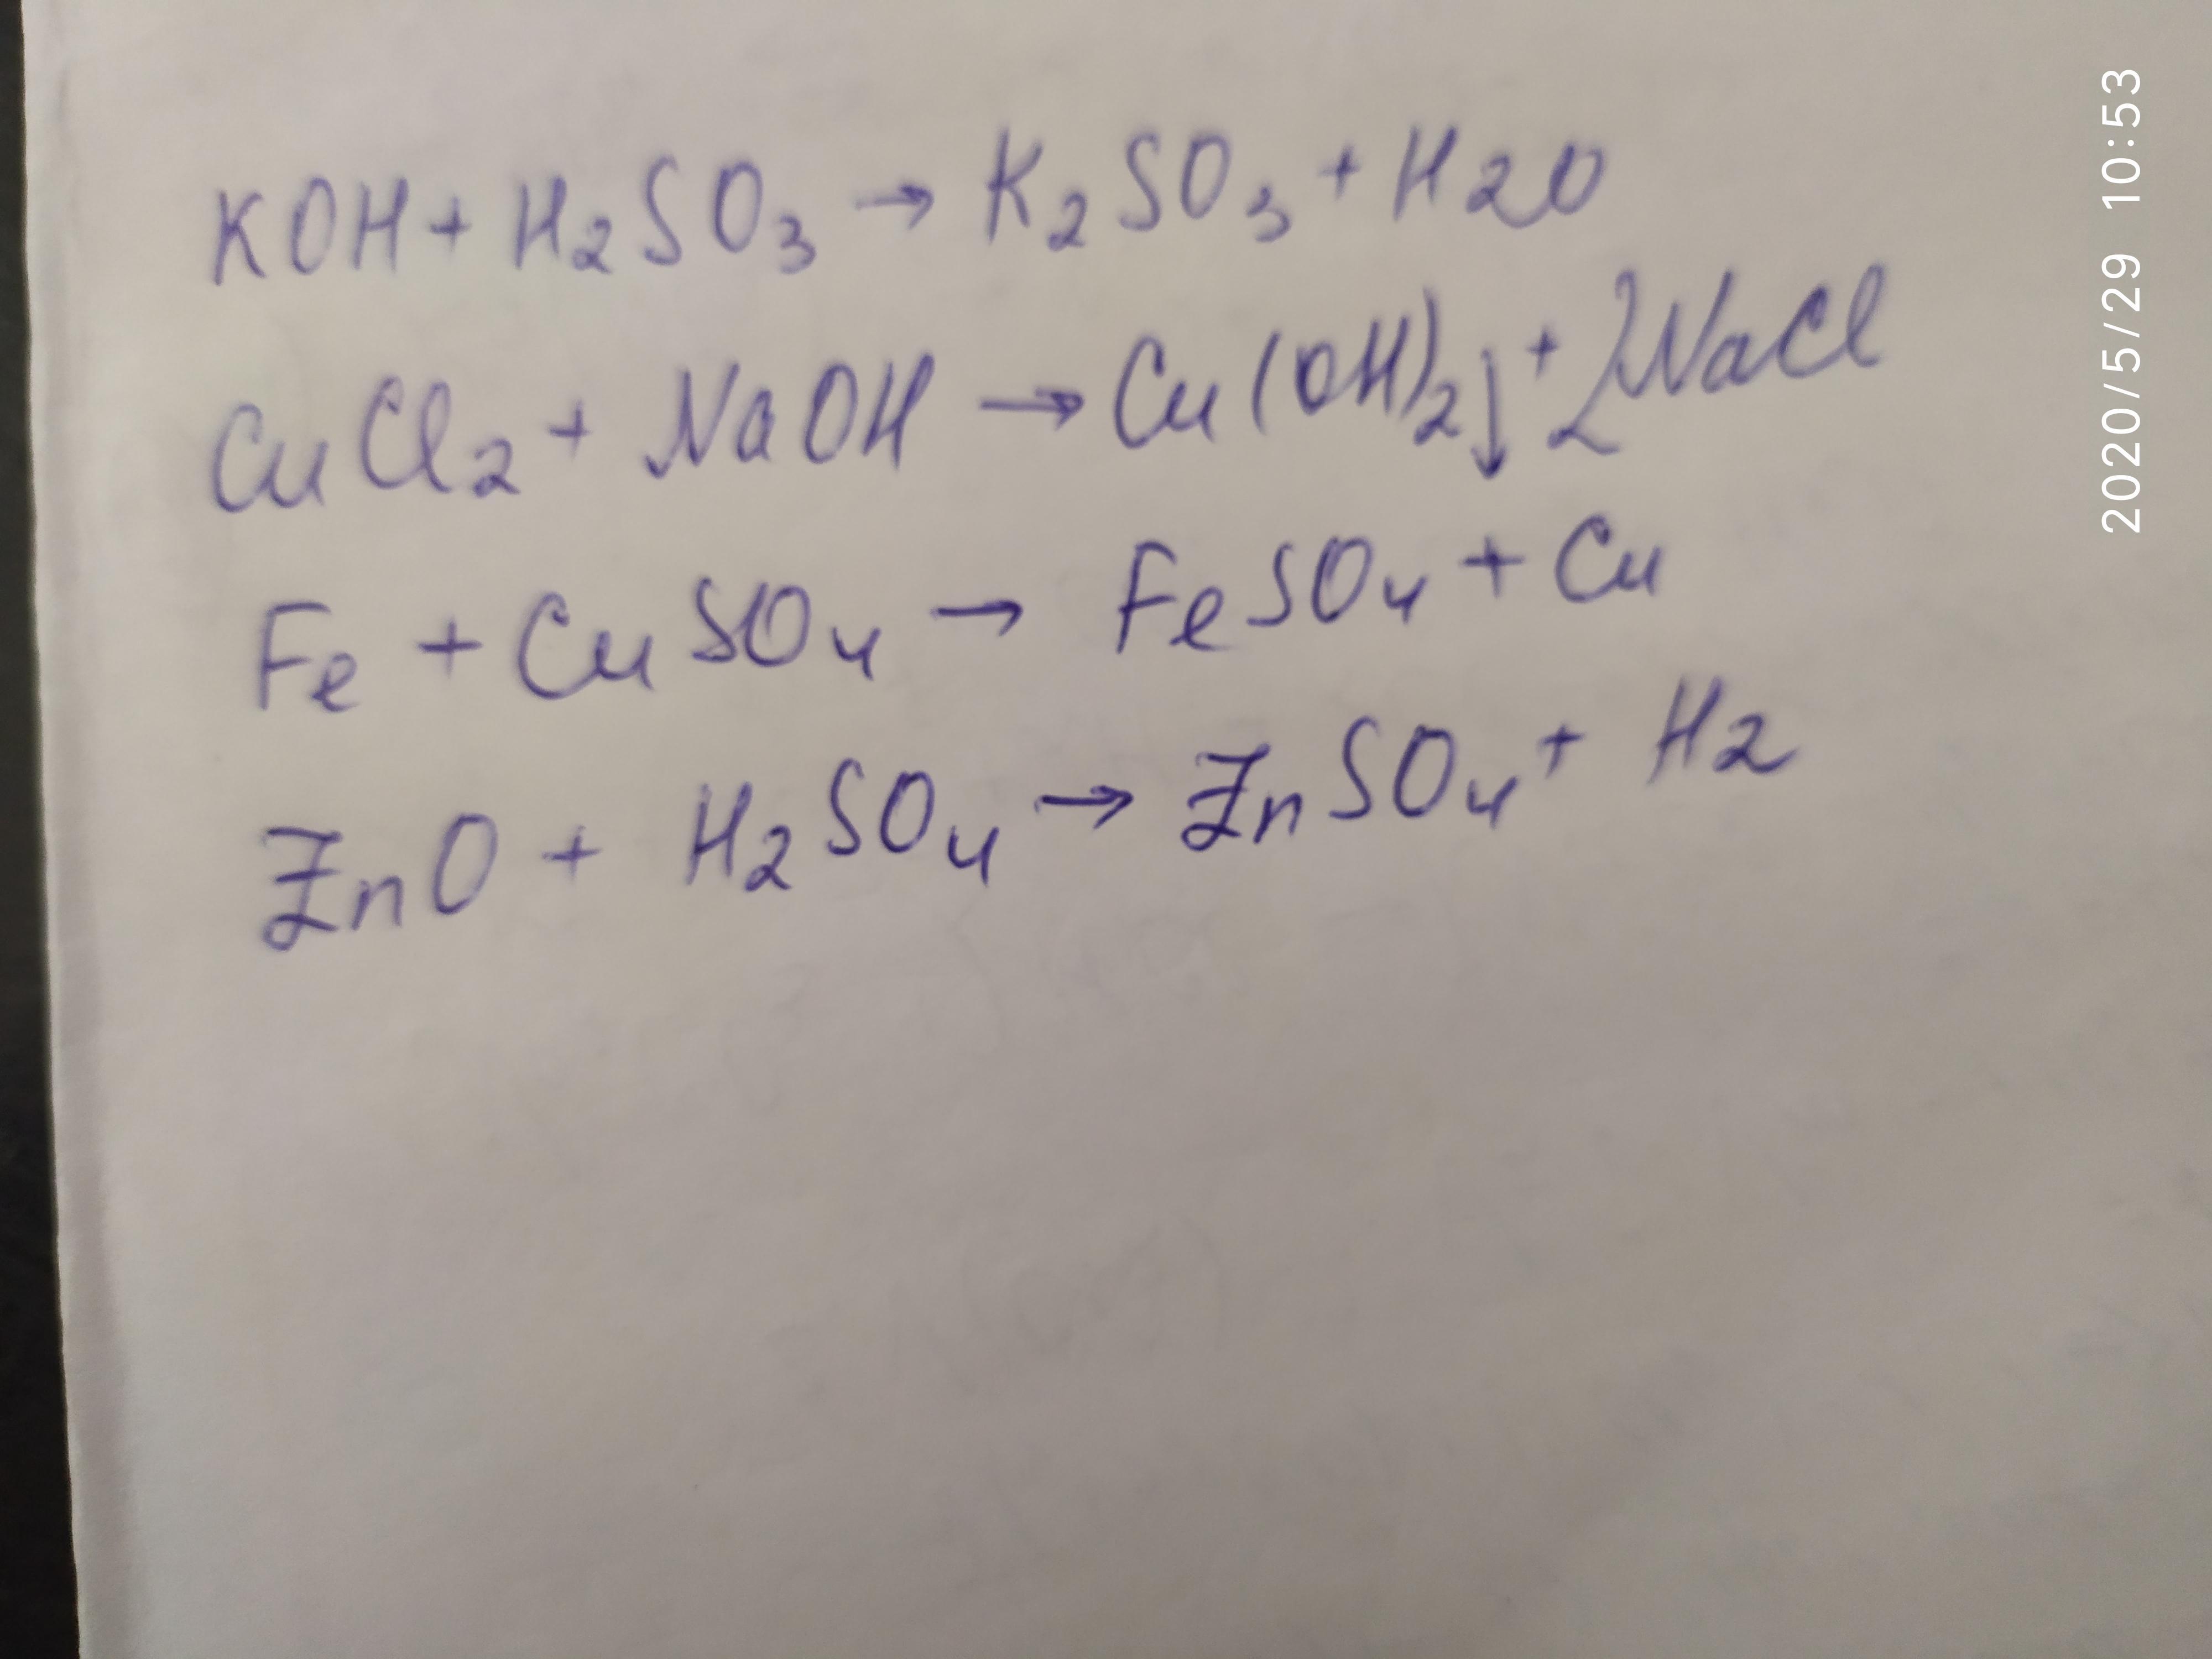 KOH + H₂SO₃ → K₂SO₃ + H2O
CuCl₂ + NaOH → Cu(OH)₂↓ + 2NaCl
Fe + CuSO₄ → FeSO₄ + Cu
ZnO + H₂SO₄ → ZnSO₄ + H2
2020/5/29 10:53